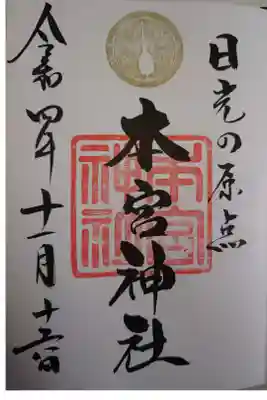 日光の原点
本宮神社
本宮神社
令和四年十一月十三日